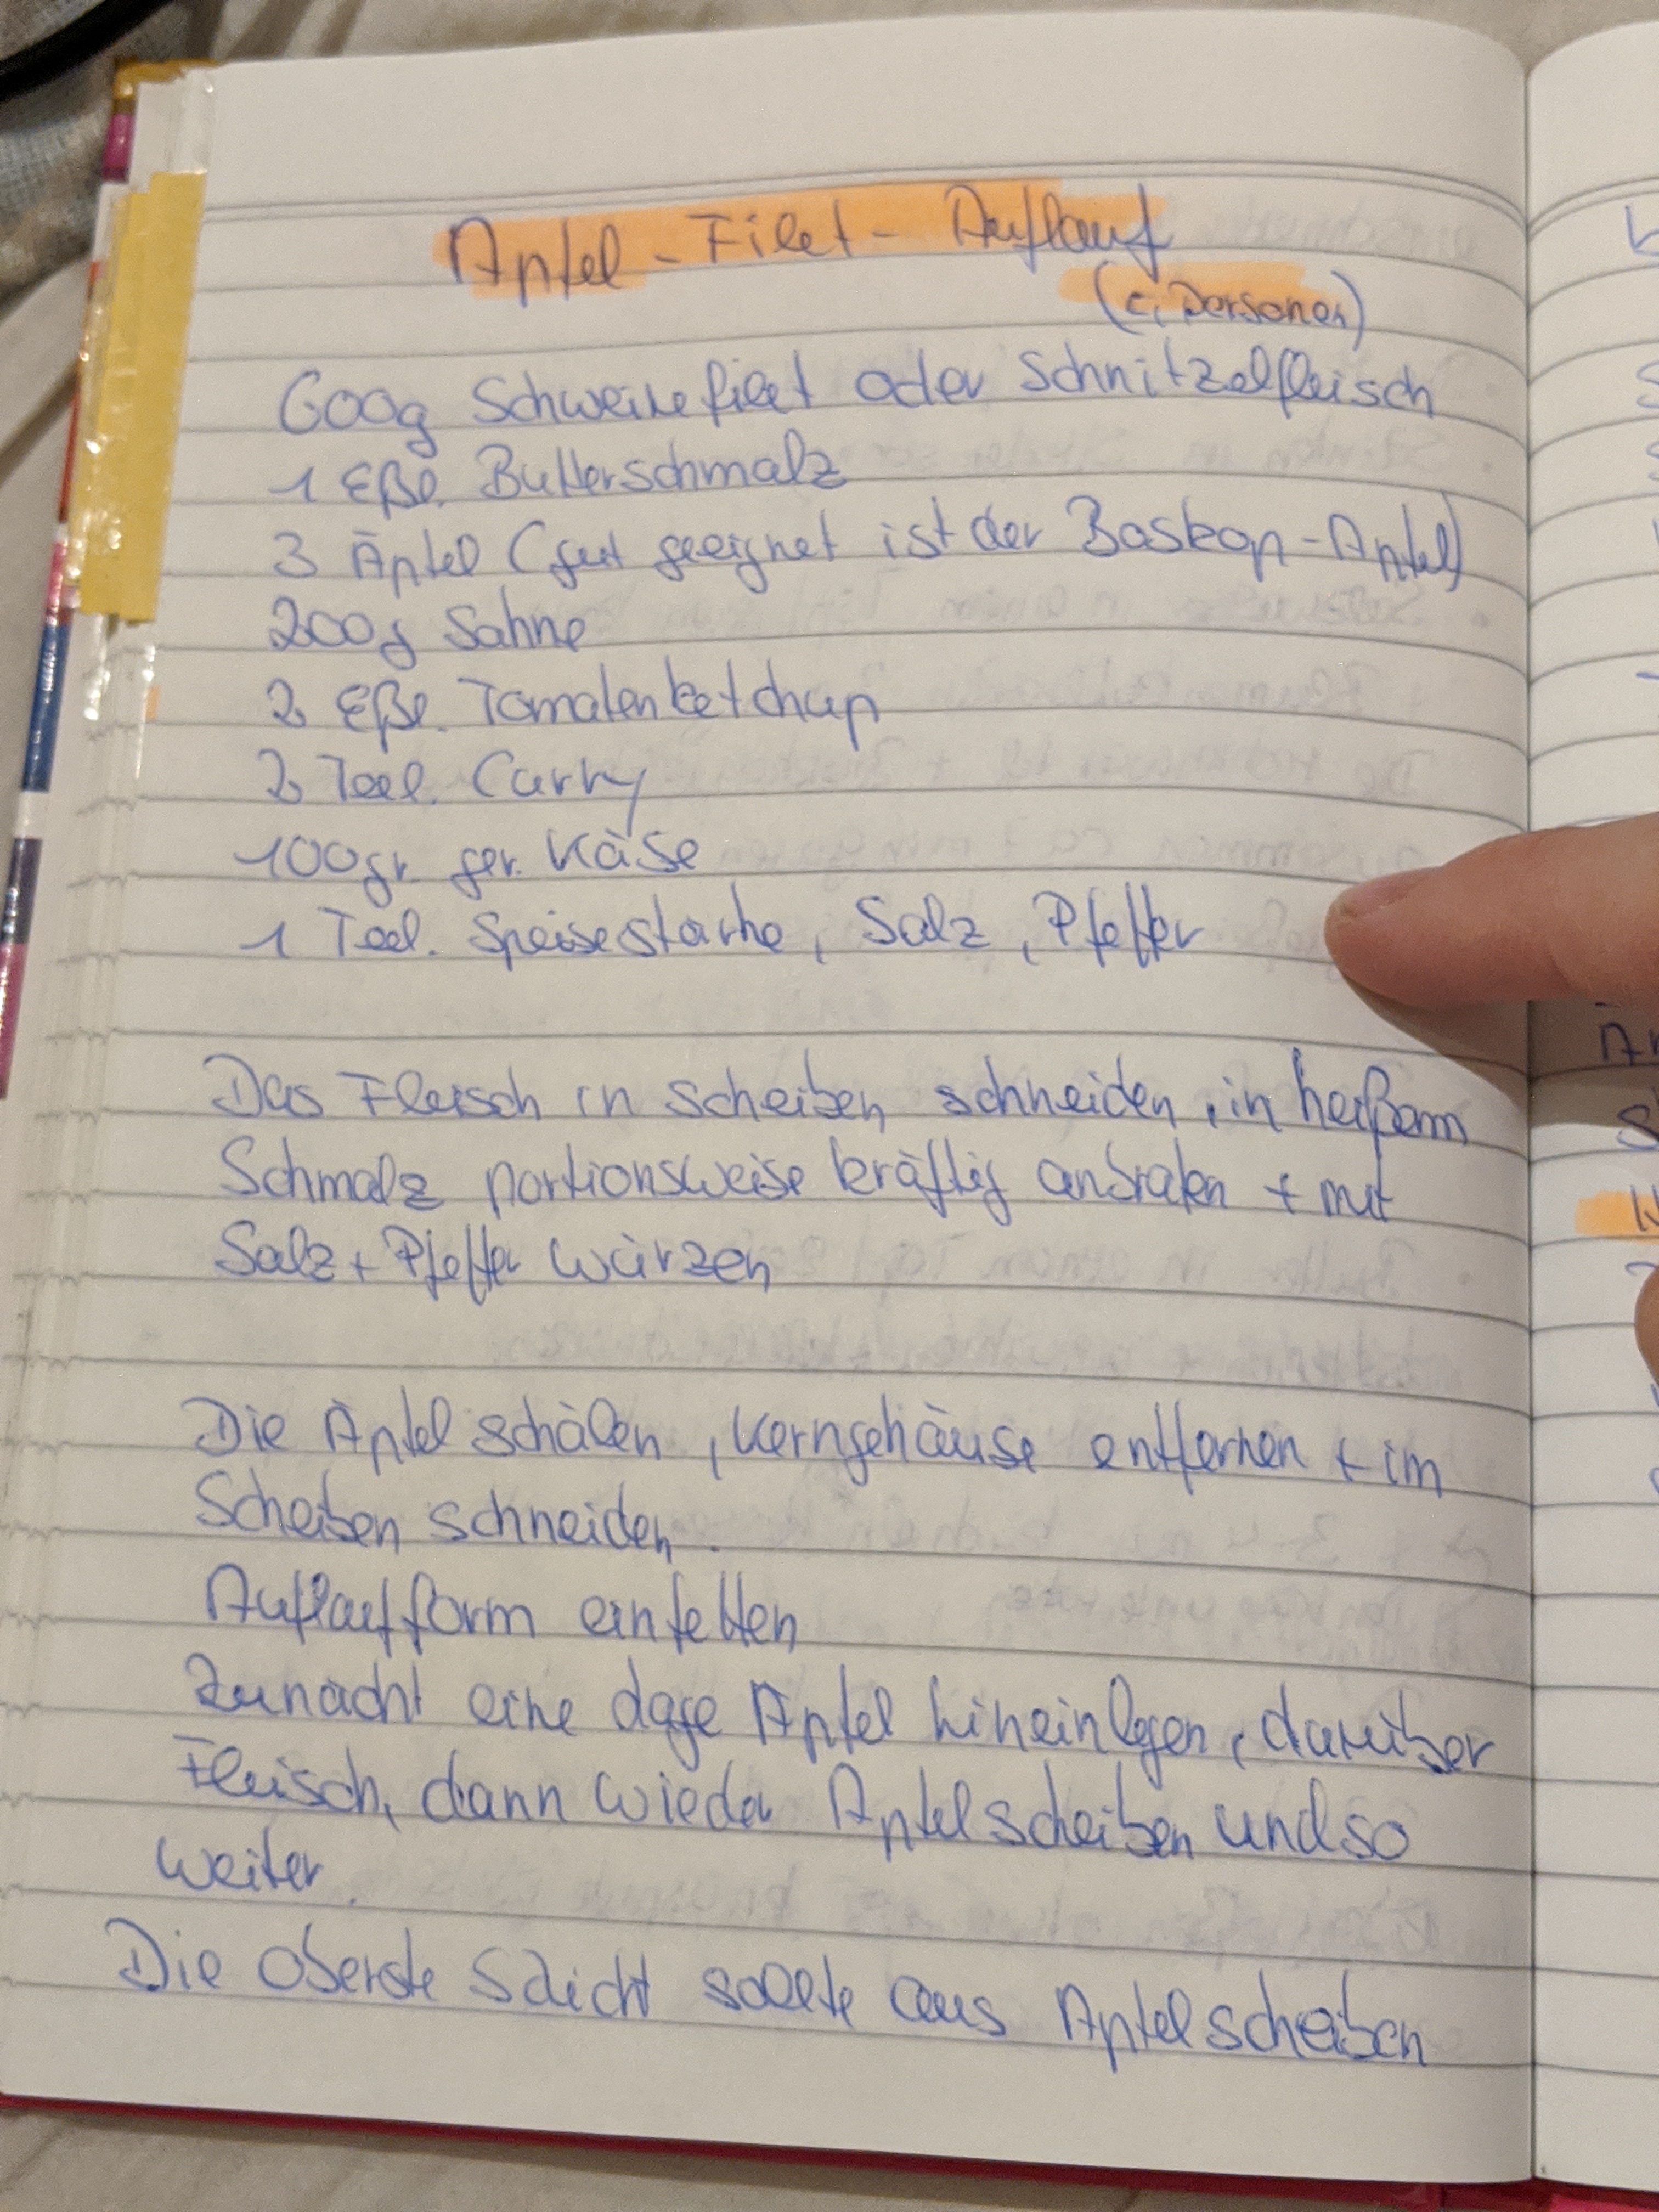 Apfel - Filet - Auflauf
Personen)
600g Schweinefilet oder Schnitzelfleisch
1 Eßl. Butterschmalz
3 Äpfel (gut geeignet ist der Boskop-Apfel)
200g Sahne
2 Eßl. Tomatenketchup
2 Teel. Curry
100gr. ger. Käse
1 Teel. Speisestärke, Salz, Pfeffer
Das Fleisch in Scheiben schneiden, in heißem
Schmalz portionsweise kräftig anbraten + mit
Salz + Pfeffer würzen
Die Äpfel schälen, Kerngehäuse entfernen + im
Scheiben schneiden.
Auflaufform einfetten
Zunächt eine Lage Äpfel hineinlegen, darüber
Fleisch, dann wieder Apfelscheiben und so
weiter.
Die oberste Schicht sollte aus Apfelscheiben